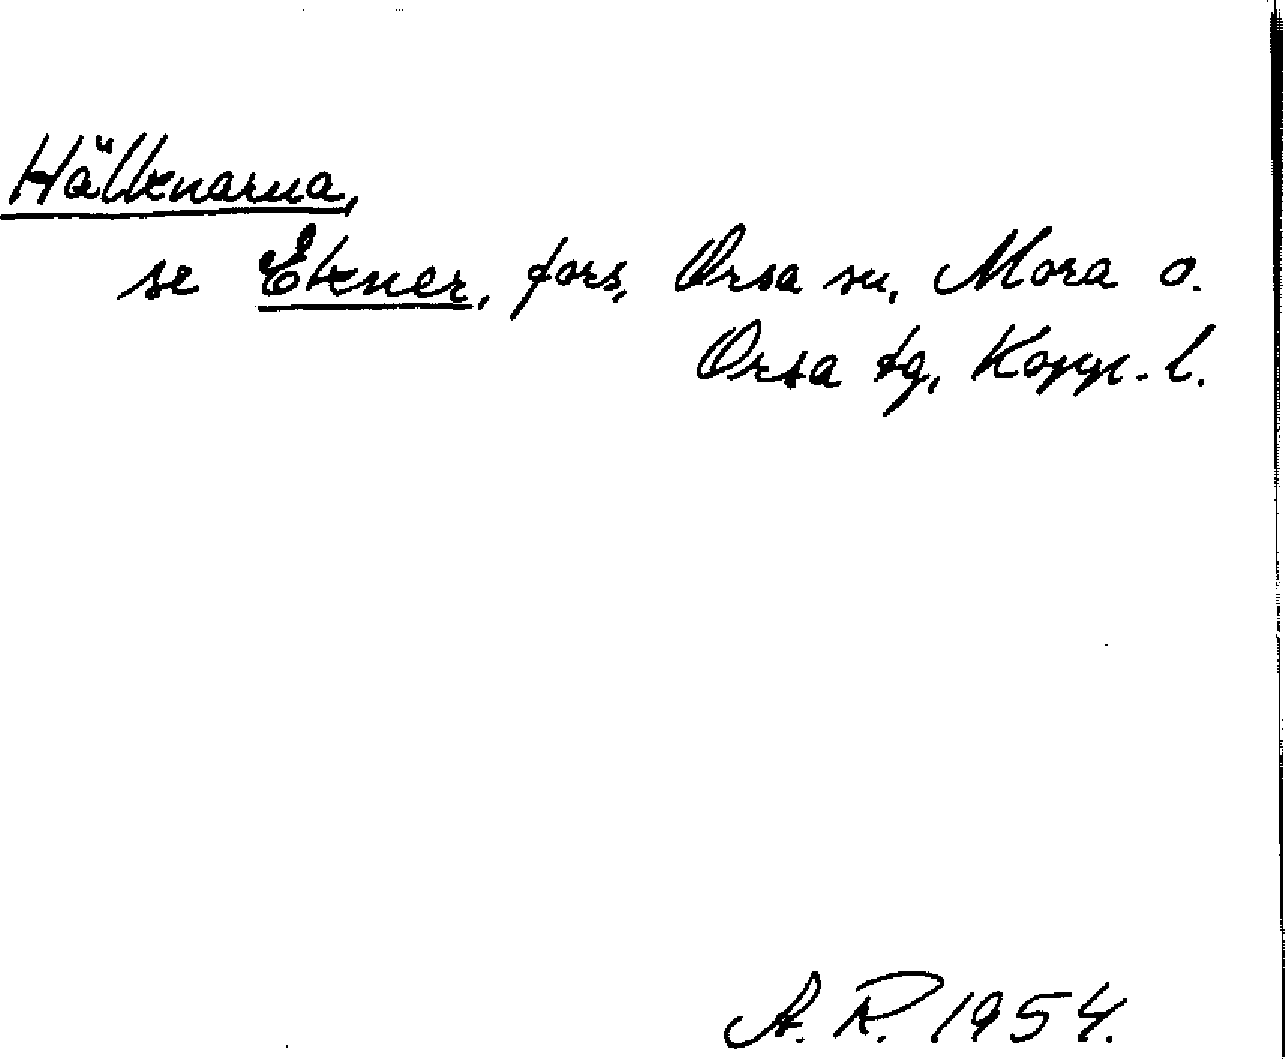 Hälltenarna,
se Etener, fors, Orsa sn, Mora o.
Orsa tg, Kopp. l.
A. R. 1954.